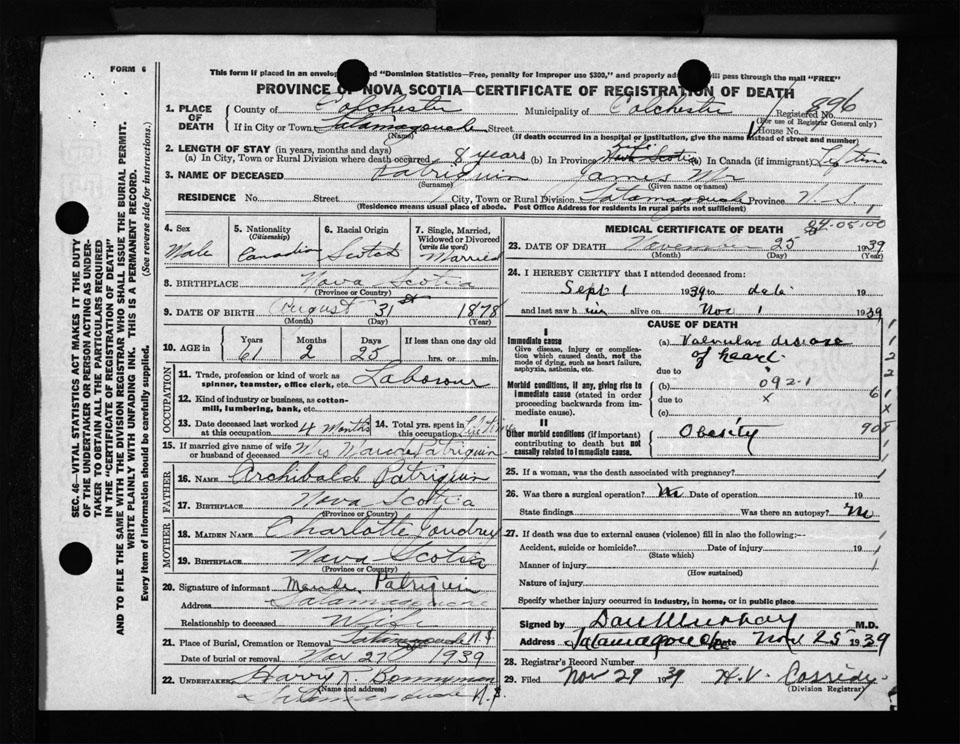 FORM 6
This form if placed in an envelop d "Dominion Statistics—Free, penalty for improper use $300," and properly ad ill pass through the mail "FREE"
PROVINCE OF NOVA SCOTIA—CERTIFICATE OF REGISTRATION OF DEATH
1. PLACE OF DEATH
County of Colchester Municipality of Colchester Registered No. 896
(For use of Registrar General only)
If in City or Town Tatamagouche Street House No.
(Name) (If death occurred in a hospital or institution, give the name instead of street and number)
2. LENGTH OF STAY (in years, months and days)
(a) In City, Town or Rural Division where death occurred 8 years (b) In Province life Nova Scotia (c) In Canada (if immigrant) Life time
3. NAME OF DECEASED Patriquin James Wm
(Surname) (Given name or names)
RESIDENCE No. Street City, Town or Rural Division Tatamagouche Province N.S.
(Residence means usual place of abode. Post Office Address for residents in rural parts not sufficient)
4. Sex
Male
5. Nationality
(Citizenship)
Canadian
6. Racial Origin
Scotch
7. Single, Married, Widowed or Divorced
(write the word)
Married
8. BIRTHPLACE Nova Scotia
(Province or Country)
9. DATE OF BIRTH August 31st 1878
(Month) (Day) (Year)
10. AGE in
Years Months Days If less than one day
61 2 25 hrs. or min.
OCCUPATION
11. Trade, profession or kind of work as spinner, teamster, office clerk, etc. Labourer
12. Kind of industry or business, as cotton-mill, lumbering, bank, etc.
13. Date deceased last worked at this occupation 4 Months
14. Total yrs. spent in this occupation Life Time
15. If married give name of wife or husband of deceased Mrs Maude Patriquin
FATHER
16. Name Archibald Patriquin
17. Birthplace Nova Scotia
(Province or Country)
MOTHER
18. Maiden Name Charlotte Joudrey
19. Birthplace Nova Scotia
(Province or Country)
20. Signature of informant Maude Patriquin
Address Tatamagouche
Relationship to deceased Wife
21. Place of Burial, Cremation or Removal Tatamagouche N.S.
Date of burial or removal Nov 27 1939
22. Undertaker Harry R. Bonnyman
(Name and address)
Tatamagouche N.S.
MEDICAL CERTIFICATE OF DEATH
04-05-00
23. DATE OF DEATH November 25 1939
(Month) (Day) (Year)
24. I HEREBY CERTIFY that I attended deceased from:
Sept 1 1939 to date 19
and last saw him alive on Nov 1 1939
CAUSE OF DEATH
I
Immediate cause
Give disease, injury or complication which caused death, not the mode of dying, such as heart failure, asphyxia, asthenia, etc.
(a) Valvular disease of heart
due to
Morbid conditions, if any, giving rise to immediate cause (stated in order proceeding backwards from immediate cause).
(b) 092.1
due to x
(c)
II
Other morbid conditions (if important) contributing to death but not causally related to immediate cause.
Obesity
25. If a woman, was the death associated with pregnancy?
26. Was there a surgical operation? No Date of operation 19
State findings Was there an autopsy? No
27. If death was due to external causes (violence) fill in also the following:—
Accident, suicide or homicide? Date of injury 19
(State which)
Manner of injury
(How sustained)
Nature of injury
Specify whether injury occurred in industry, in home, or in public place
Signed by Dan Murray M.D.
Address Tatamagouche Date Nov 25 1939
28. Registrar's Record Number
29. Filed Nov 29 1939 H. V. Cassidy
(Division Registrar)
SEC. 46—VITAL STATISTICS ACT MAKES IT THE DUTY
OF THE UNDERTAKER OR PERSON ACTING AS UNDER-
TAKER TO OBTAIN ALL THE PARTICULARS REQUIRED
IN THE "CERTIFICATE OF REGISTRATION OF DEATH"
AND TO FILE THE SAME WITH THE DIVISION REGISTRAR WHO SHALL ISSUE THE BURIAL PERMIT.
WRITE PLAINLY WITH UNFADING INK. THIS IS A PERMANENT RECORD.
Every item of information should be carefully supplied. (See reverse side for instructions.)